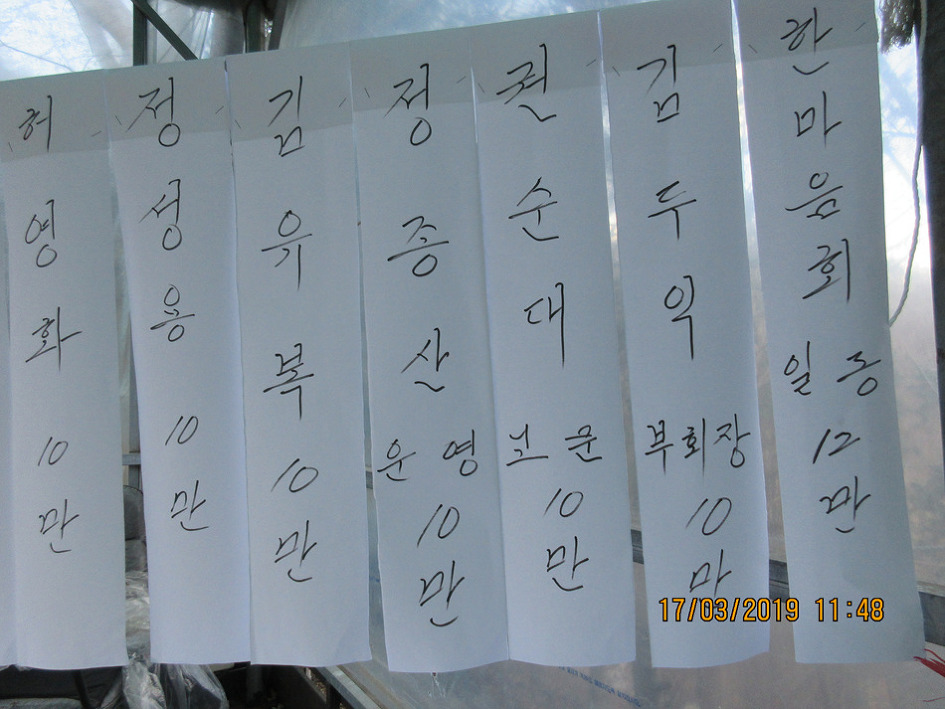 한마음회 일동 12만
김두익 부회장 10만
권순대 10만
정증산 운영 10만
김유복 10만
정성용 10만
허영화 10만
17/03/2019 11:48